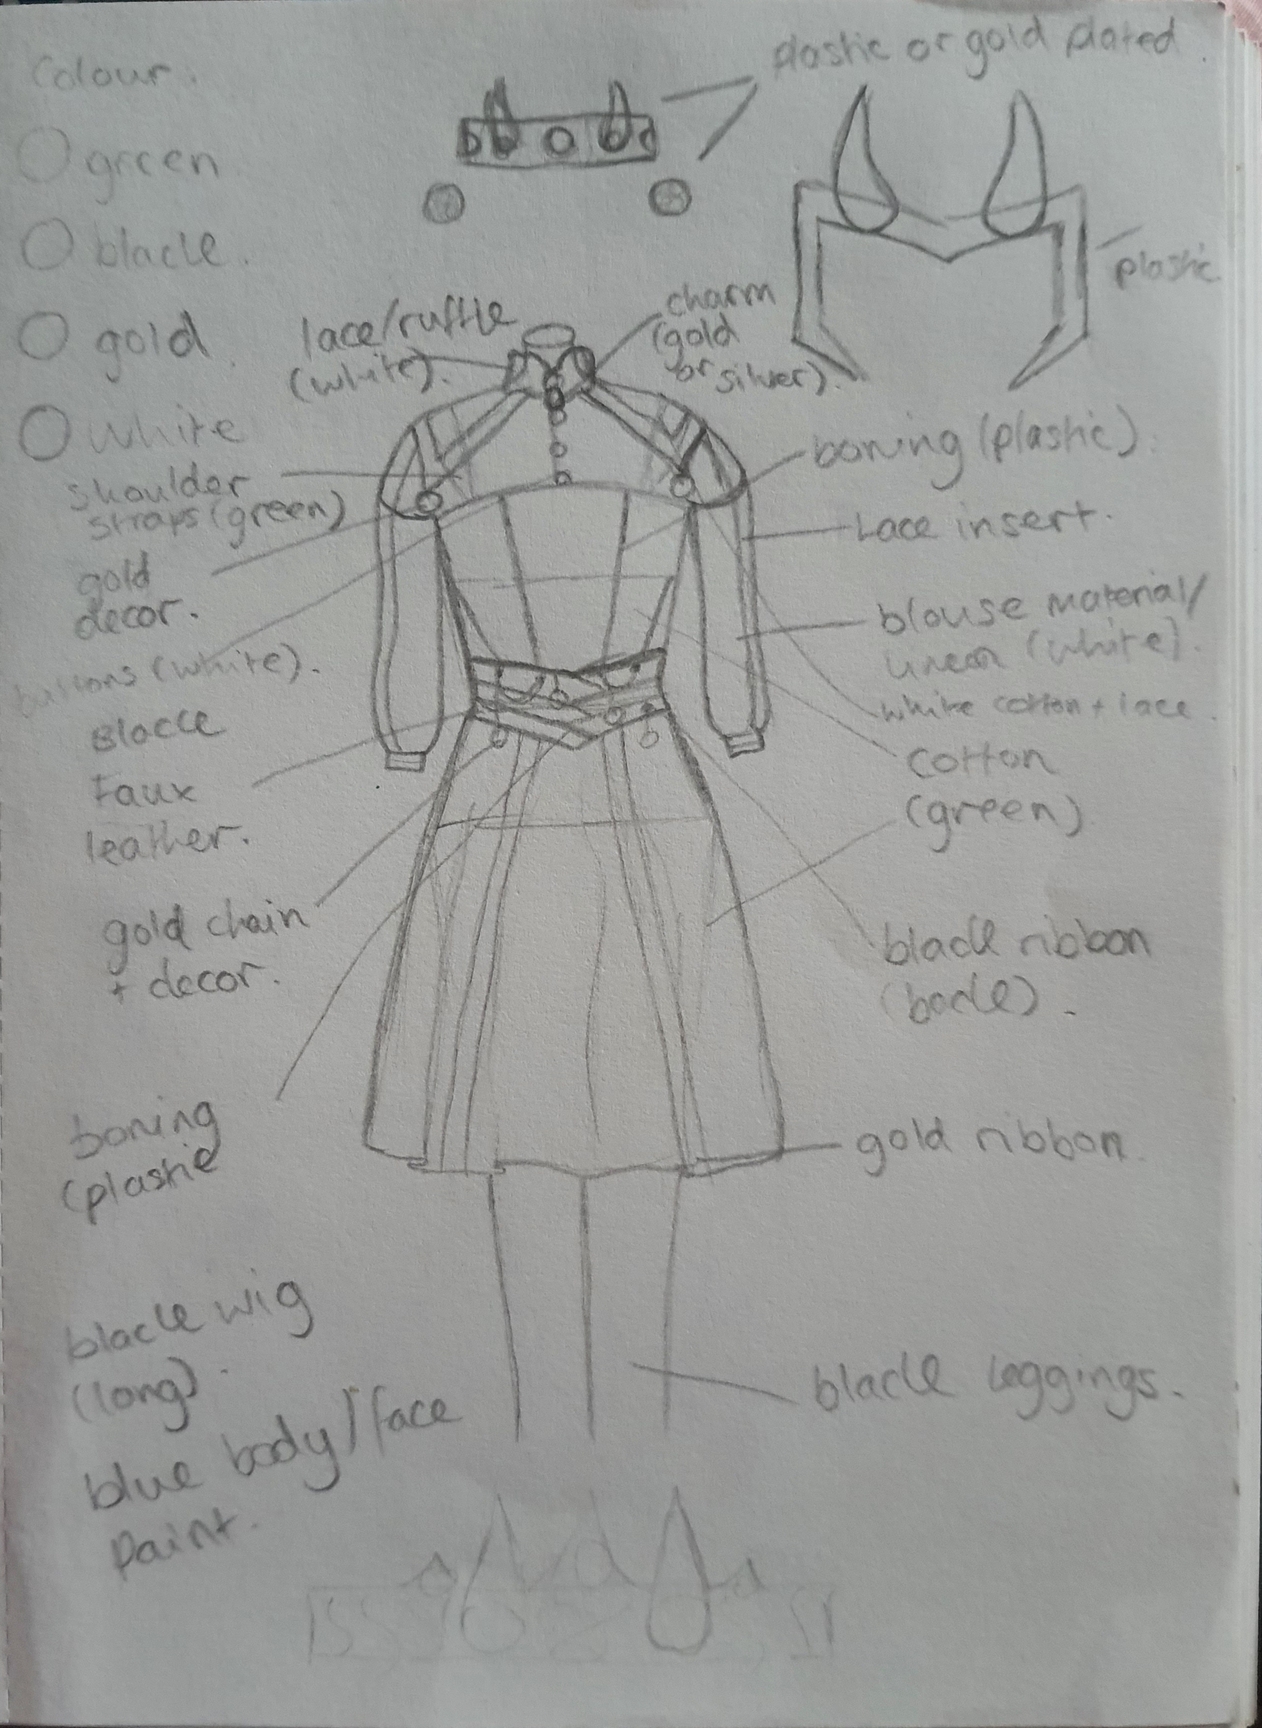 Colour:
green
black.
gold.
white
plastic or gold plated
plastic
lace/ruffle
(white).
charm
(gold
or silver).
shoulder
straps (green)
gold
decor.
buttons (white).
Black
Faux
leather.
gold chain
+ decor.
boning
(plastic
black wig
(long).
blue body/face
paint.
boning (plastic).
Lace insert.
blouse material/
(white).
white cotton + lace.
cotton
(green)
black ribbon
(back).
gold ribbon.
black leggings.